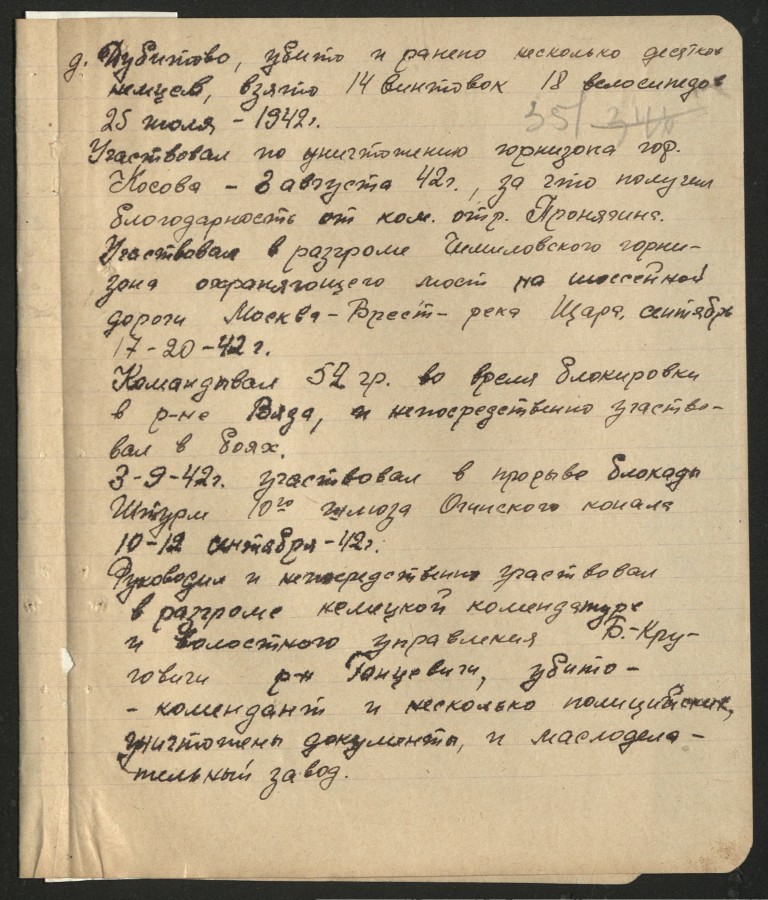 д. Дубитово, убито и ранено несколько десятков
немцев, взято 14 винтовок 18 велосипедов
25 июля - 1942г.
35/ 344
Участвовал по уничтожению горнизона гор.
Косова - 2 августа 42г., за что получил
благодарность от ком. отр. Пронягина.
Участвовал в разгроме Чемиловского горни-
зона охраняющего мост на шоссейной
дороги Москва - Брест - река Щара, сентябрь
17-20-42г.
Командывал 52 гр. во время блокировки
в р-не Вяда, и непосредственно участво-
вал в боях.
3-9-42г. участвовал в прорыве блокады
Штурм 10го шлюза Огинского конала
10-12 сентября - 42г.
Руководил и непосредственно участвовал
в разгроме немецкой комендатуре
и волостного управления Б.-Кру-
говичи р-н Ганцевичи, убито -
- комендант и несколько полицийских,
уничтожены документы, и маслодела-
тельный завод.